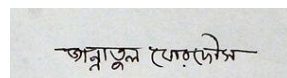 জান্নাতুল ফেরদৌস